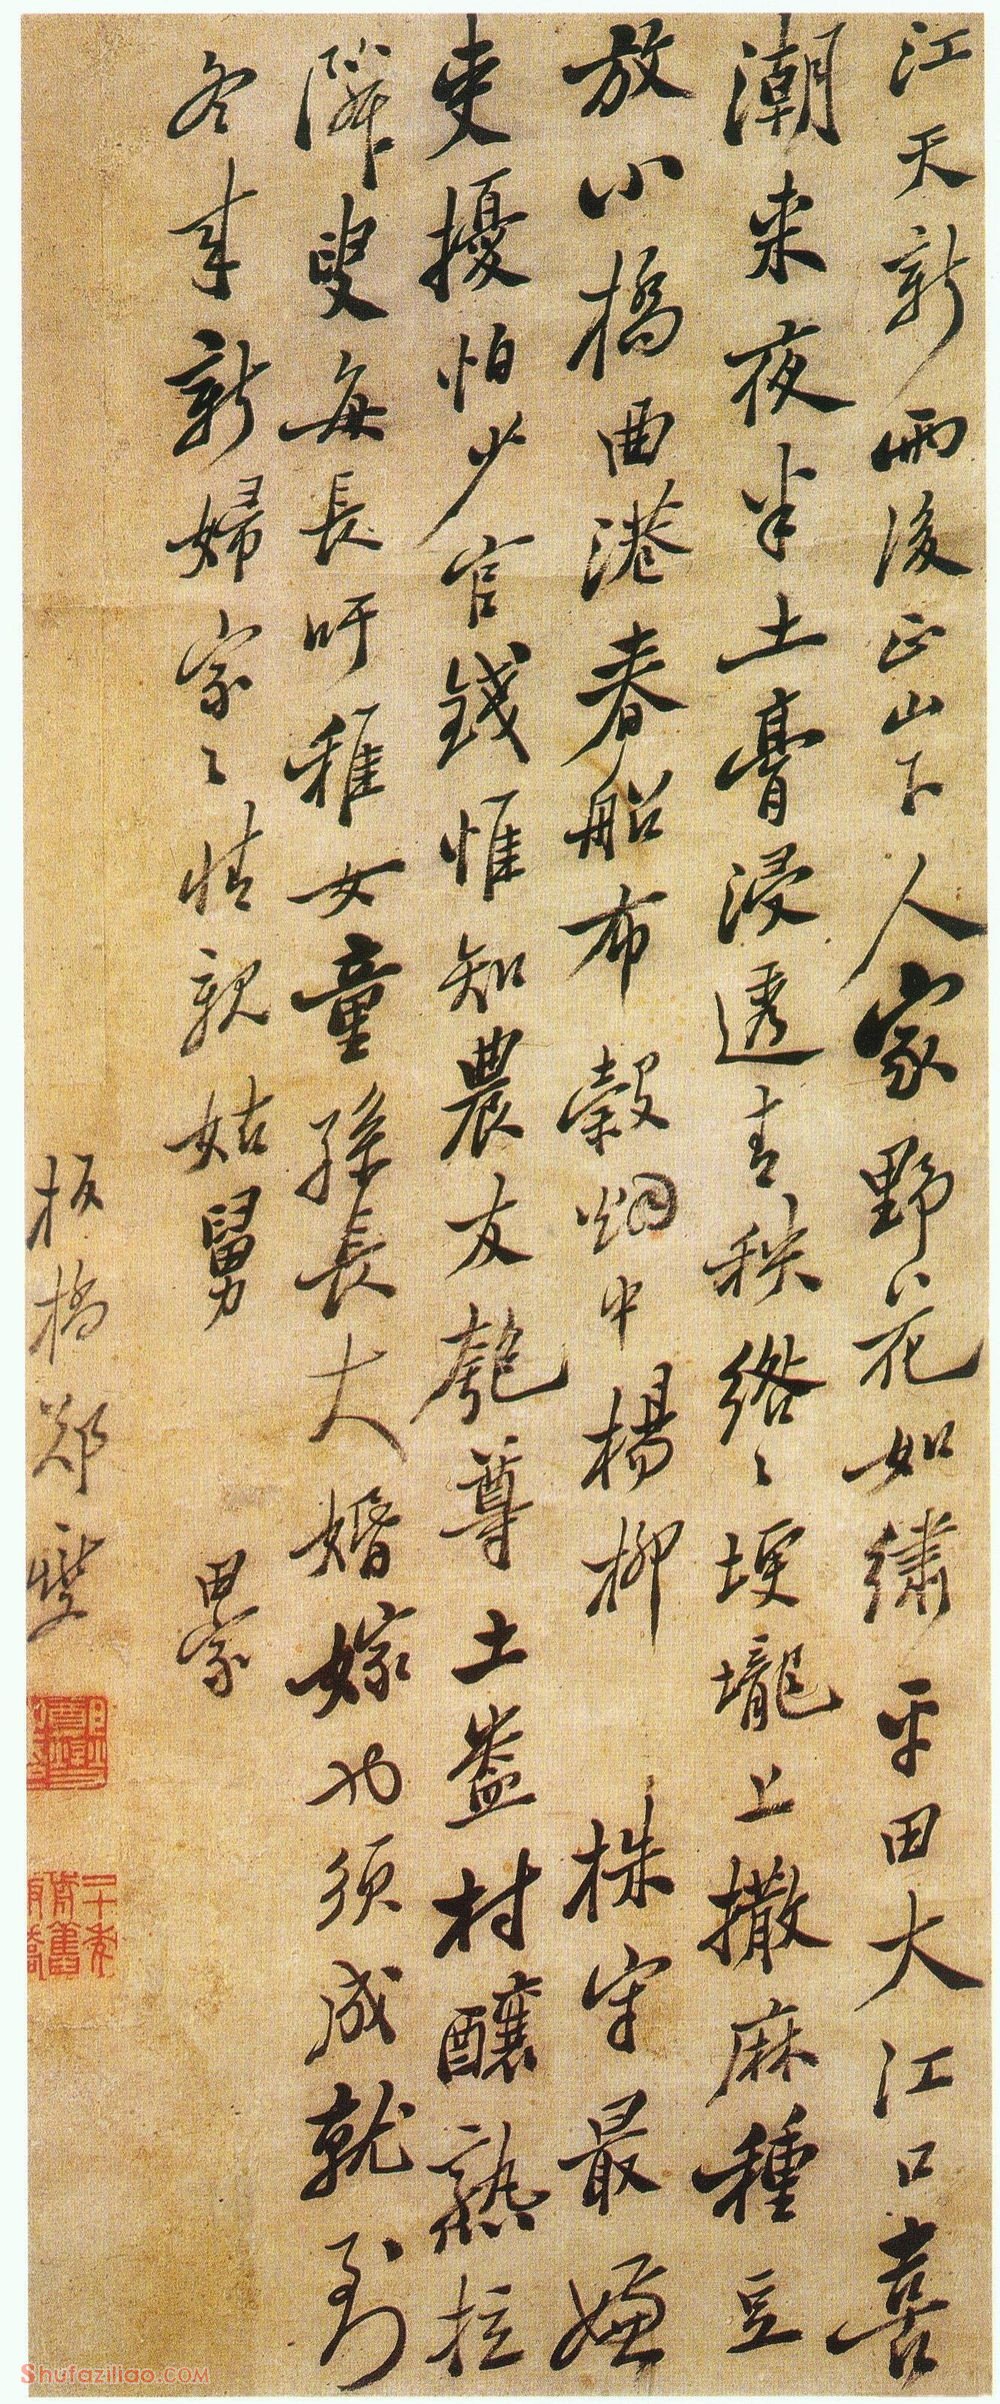 江天新雨後正山下人家野花如繡平田大江口喜
潮來夜半土膏浸透青秧綹〻埂壠上撒麻種豆
放小橋曲港春船布穀烟中楊柳 株守最嫌
吏擾怕少官錢惟知農友匏尊土盎村釀熟拉
隣叟每長吁稚女童孫長大婚嫁也須成就到
冬來新婦家〻情親姑舅 田家
板橋鄭燮
二十年前舊板橋
Shufaziliao.COM